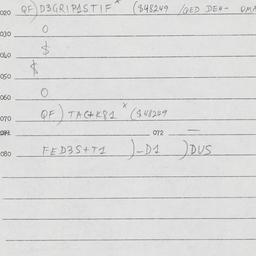 020 QF) D3GRIP1STIF* ($48249 /QED DEH-
030 0
040 $
050 $
060 0
070 QF) TAG+K81* ($48249
072 —
080 FED3S+T1 )-D1 )DUS